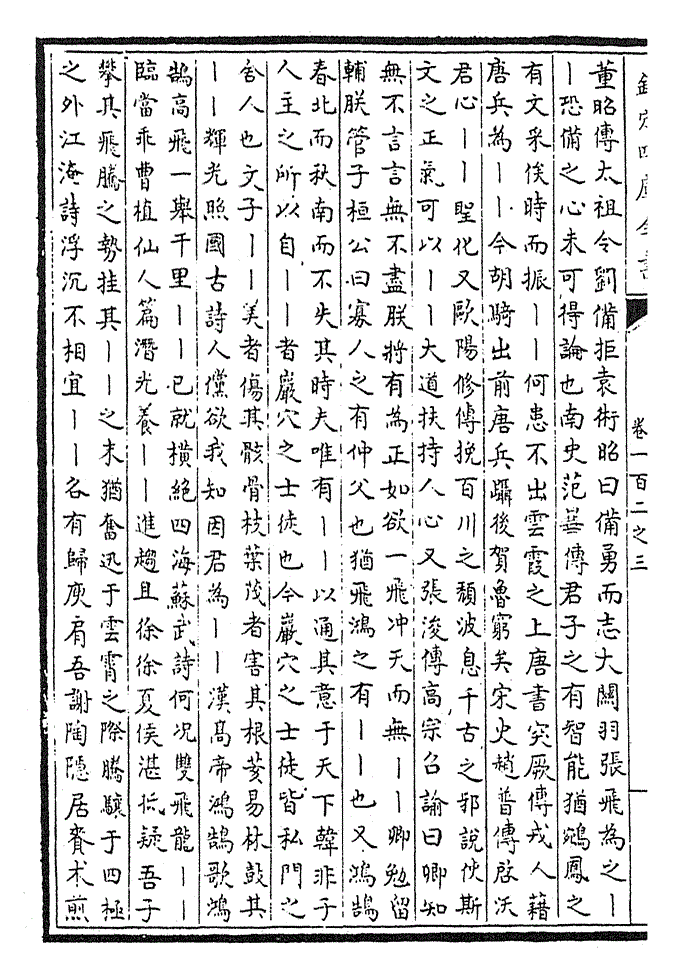 欽定四庫全書
卷一百二之三
董昭傳太祖令劉備拒袁術昭曰備勇而志大關羽張飛為之一
一恐備之心未可得論也南史范蓋傳君子之有智能猶鵷鳳之
有文采俟時而振一一何患不出雲霞之上唐書突厥傳戎人藉
唐兵為一一今胡騎出前唐兵躡後賀魯窮矣宋史趙普傳啟沃
君心一一聖化又歐陽修傳挽百川之頹波息千古之邪說使斯
文之正氣可以一一大道扶持人心又張浚傳高宗召諭曰卿知
無不言言無不盡朕將有為正如欲一飛冲天而無一一卿勉留
輔朕管子桓公曰寡人之有仲父也猶飛鴻之有一一也又鴻鵠
春北而秋南而不失其時夫唯有一一以通其意于天下韓非子
人主之所以自一一者巖穴之士徒也今巖穴之士徒皆私門之
舍人也文子一一美者傷其骸骨枝葉茂者害其根荄易林鼓其
一一輝光照國古詩人儻欲我知因君為一一漢高帝鴻鵠歌鴻
鵠高飛一舉千里一一已就橫絕四海蘇武詩何況雙飛龍一一
臨當乖曹植仙人篇潛光養一一進趨且徐徐夏侯湛抵疑吾子
攀其飛騰之勢挂其一一之末猶奮迅于雲霄之際騰驤于四極
之外江淹詩浮沉不相宜一一各有歸庾肩吾謝陶隱居賚朮煎